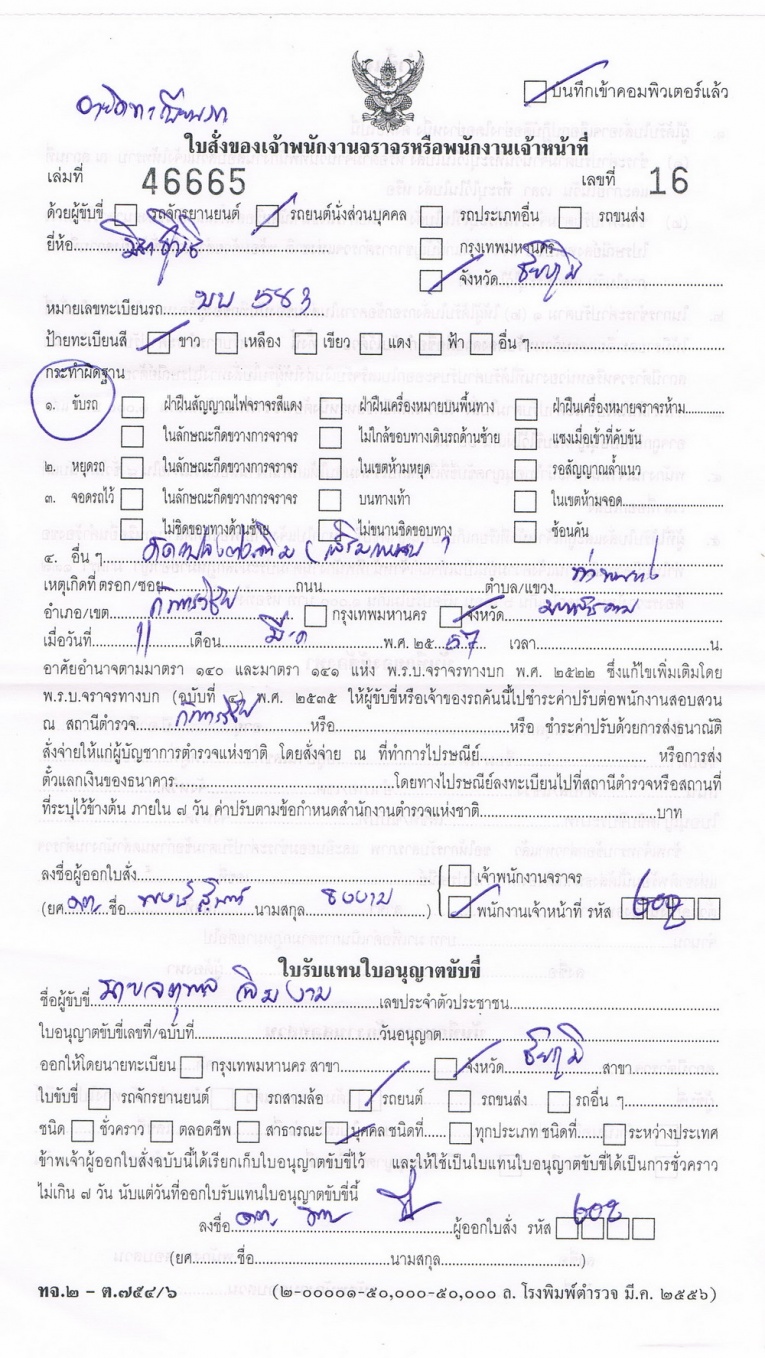 อายัดทะเบียนรถ
บันทึกเข้าคอมพิวเตอร์แล้ว
ใบสั่งของเจ้าพนักงานจราจรหรือพนักงานเจ้าหน้าที่
เล่มที่ 46665 เลขที่ 16
ด้วยผู้ขับขี่ รถจักรยานยนต์ รถยนต์นั่งส่วนบุคคล รถประเภทอื่น รถขนส่ง
ยี่ห้อ กรุงเทพมหานคร
จังหวัด ชัยภูมิ
หมายเลขทะเบียนรถ บบ 583
ป้ายทะเบียนสี ขาว เหลือง เขียว แดง ฟ้า อื่น ๆ
กระทำผิดฐาน
๑. ขับรถ ฝ่าฝืนสัญญาณไฟจราจรสีแดง ฝ่าฝืนเครื่องหมายบนพื้นทาง ฝ่าฝืนเครื่องหมายจราจรห้าม
ในลักษณะกีดขวางการจราจร ไม่ใกล้ขอบทางเดินรถด้านซ้าย แซงเมื่อเข้าที่คับขัน
๒. หยุดรถ ในลักษณะกีดขวางการจราจร ในเขตห้ามหยุด รอสัญญาณล้ำแนว
๓. จอดรถไว้ ในลักษณะกีดขวางการจราจร บนทางเท้า ในเขตห้ามจอด
ไม่ชิดขอบทางด้านซ้าย ไม่ขนานชิดขอบทาง ซ้อนคัน
๔. อื่น ๆ ดัดแปลงต่อเติม (เสริมแหนบ)
เหตุเกิดที่ ตรอก/ซอย ถนน ตำบล/แขวง
อำเภอ/เขต กันทรวิชัย กรุงเทพมหานคร จังหวัด มหาสารคาม
เมื่อวันที่ 11 เดือน มี.ค พ.ศ. ๒๕ 57 เวลา น.
อาศัยอำนาจตามมาตรา ๑๔๐ และมาตรา ๑๔๑ แห่ง พ.ร.บ.จราจรทางบก พ.ศ. ๒๕๒๒ ซึ่งแก้ไขเพิ่มเติมโดย
พ.ร.บ.จราจรทางบก (ฉบับที่ ๔) พ.ศ. ๒๕๓๕ ให้ผู้ขับขี่หรือเจ้าของรถคันนี้ไปชำระค่าปรับต่อพนักงานสอบสวน
ณ สถานีตำรวจ กันทรวิชัย หรือ หรือ ชำระค่าปรับด้วยการส่งธนาณัติ
สั่งจ่ายให้แก่ผู้บัญชาการตำรวจแห่งชาติ โดยสั่งจ่าย ณ ที่ทำการไปรษณีย์ หรือการส่ง
ตั๋วแลกเงินของธนาคาร โดยทางไปรษณีย์ลงทะเบียนไปที่สถานีตำรวจหรือสถานที่
ที่ระบุไว้ข้างต้น ภายใน ๗ วัน ค่าปรับตามข้อกำหนดสำนักงานตำรวจแห่งชาติ บาท
ลงชื่อผู้ออกใบสั่ง เจ้าพนักงานจราจร
(ยศ ด.ต. ชื่อ นามสกุล ) พนักงานเจ้าหน้าที่ รหัส 602
ใบรับแทนใบอนุญาตขับขี่
ชื่อผู้ขับขี่ นายจตุพล เลขประจำตัวประชาชน
ใบอนุญาตขับขี่เลขที่/ฉบับที่ วันอนุญาต
ออกให้โดยนายทะเบียน กรุงเทพมหานคร สาขา จังหวัด ชัยภูมิ สาขา
ใบขับขี่ รถจักรยานยนต์ รถสามล้อ รถยนต์ รถขนส่ง รถอื่น ๆ
ชนิด ชั่วคราว ตลอดชีพ สาธารณะ บุคคล ชนิดที่ ทุกประเภท ชนิดที่ ระหว่างประเทศ
ข้าพเจ้าผู้ออกใบสั่งฉบับนี้ได้เรียกเก็บใบอนุญาตขับขี่ไว้ และให้ใช้เป็นใบแทนใบอนุญาตขับขี่ได้เป็นการชั่วคราว
ไม่เกิน ๗ วัน นับแต่วันที่ออกใบรับแทนใบอนุญาตขับขี่นี้
ลงชื่อ ด.ต. ผู้ออกใบสั่ง รหัส 602
(ยศ ชื่อ นามสกุล )
ทจ.๒ - ต.๗๕๔/๖ (๒-๐๐๐๐๑-๕๐,๐๐๐-๕๐,๐๐๐ ล. โรงพิมพ์ตำรวจ มี.ค. ๒๕๕๖)